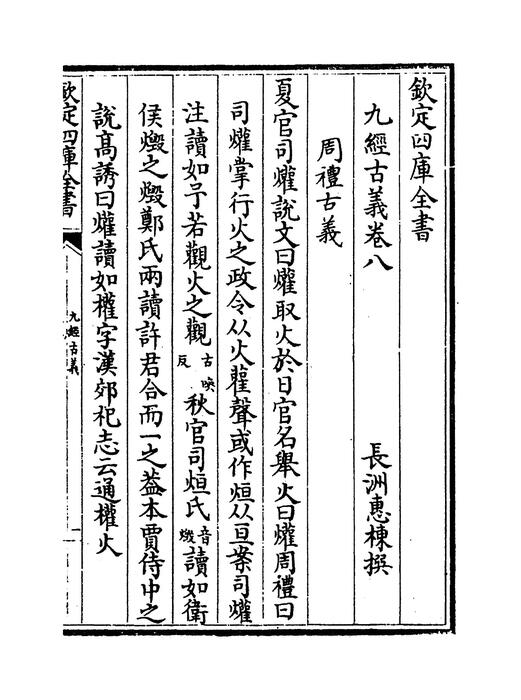 欽定四庫全書
九經古義卷八
長洲惠棟撰
周禮古義
夏官司爟說文曰爟取火於日官名舉火曰爟周禮曰
司爟掌行火之政令从火雚聲或作烜从亘案司爟
注讀如予若觀火之觀古喚反秋官司烜氏音燬讀如衛
侯燬之燬鄭氏兩讀許君合而一之葢本賈侍中之
說高誘曰爟讀如權字漢郊祀志云通權火
欽定四庫全書
九經古義
一